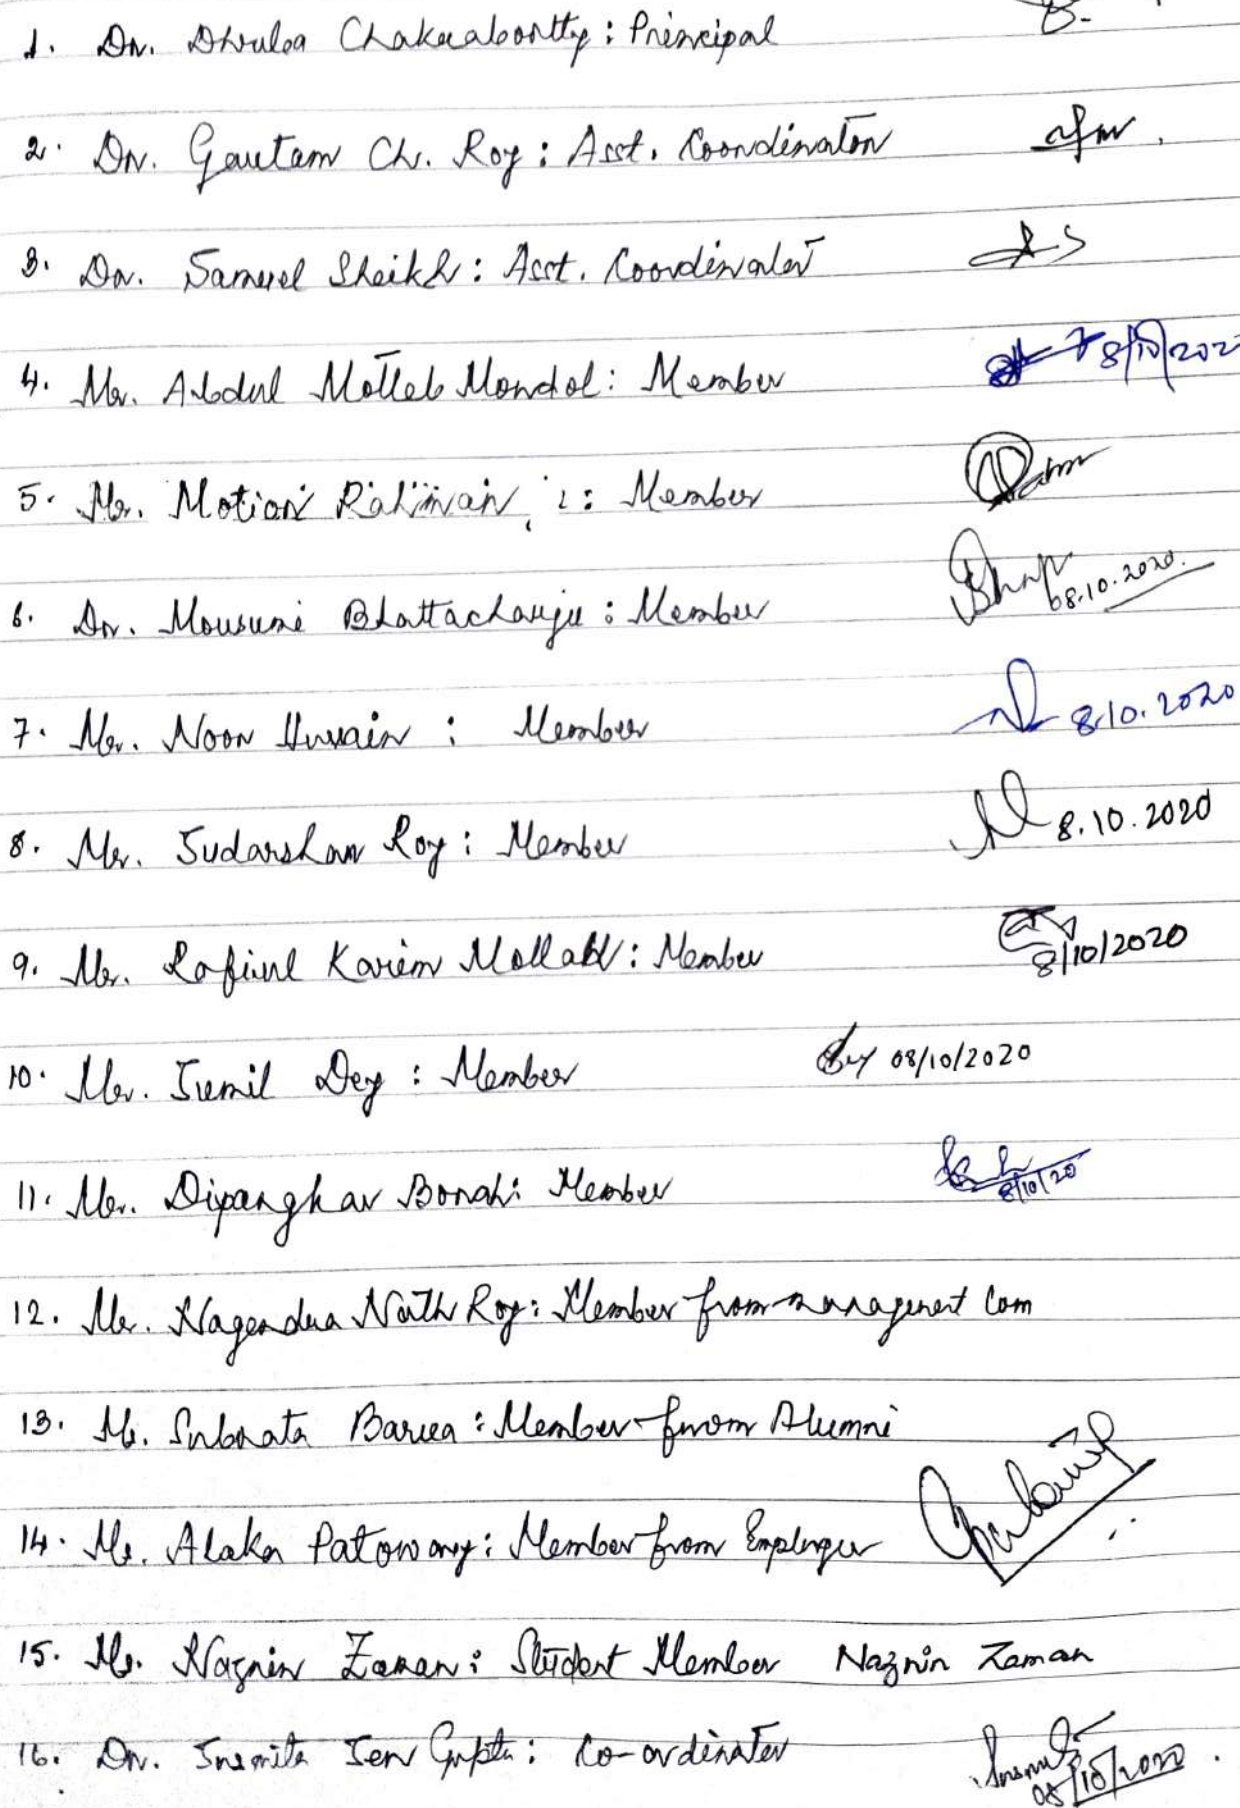 1. Dr. Dhruba Chakrabortty : Principal
2. Dr. Gautam Ch. Roy : Asst. Coordinator
3. Dr. Samuel Sheikh : Asst. Coordinator
4. Mr. Abdul Motleb Mondol : Member 8/10/202
5. Mr. Motior Rahman : Member
6. Dr. Mousumi Bhattacharjee : Member 08.10.2020.
7. Mr. Noor Hussain : Member 8.10.2020
8. Mr. Sudarshan Roy : Member 8.10.2020
9. Mr. Rafiul Karim Mollah : Member 8/10/2020
10. Mr. Sunil Dey : Member Dey 08/10/2020
11. Mr. Dipangkar Borah : Member 8/10/20
12. Mr. Nagendra Nath Roy : Member from management Com
13. Mr. Subrata Barua : Member from Alumni
14. Ms. Alaka Patowary : Member from Employer
15. Ms. Naznin Zaman : Student Member Naznin Zaman
16. Dr. Susmita Sen Gupta : Co-ordinator 08/10/2020